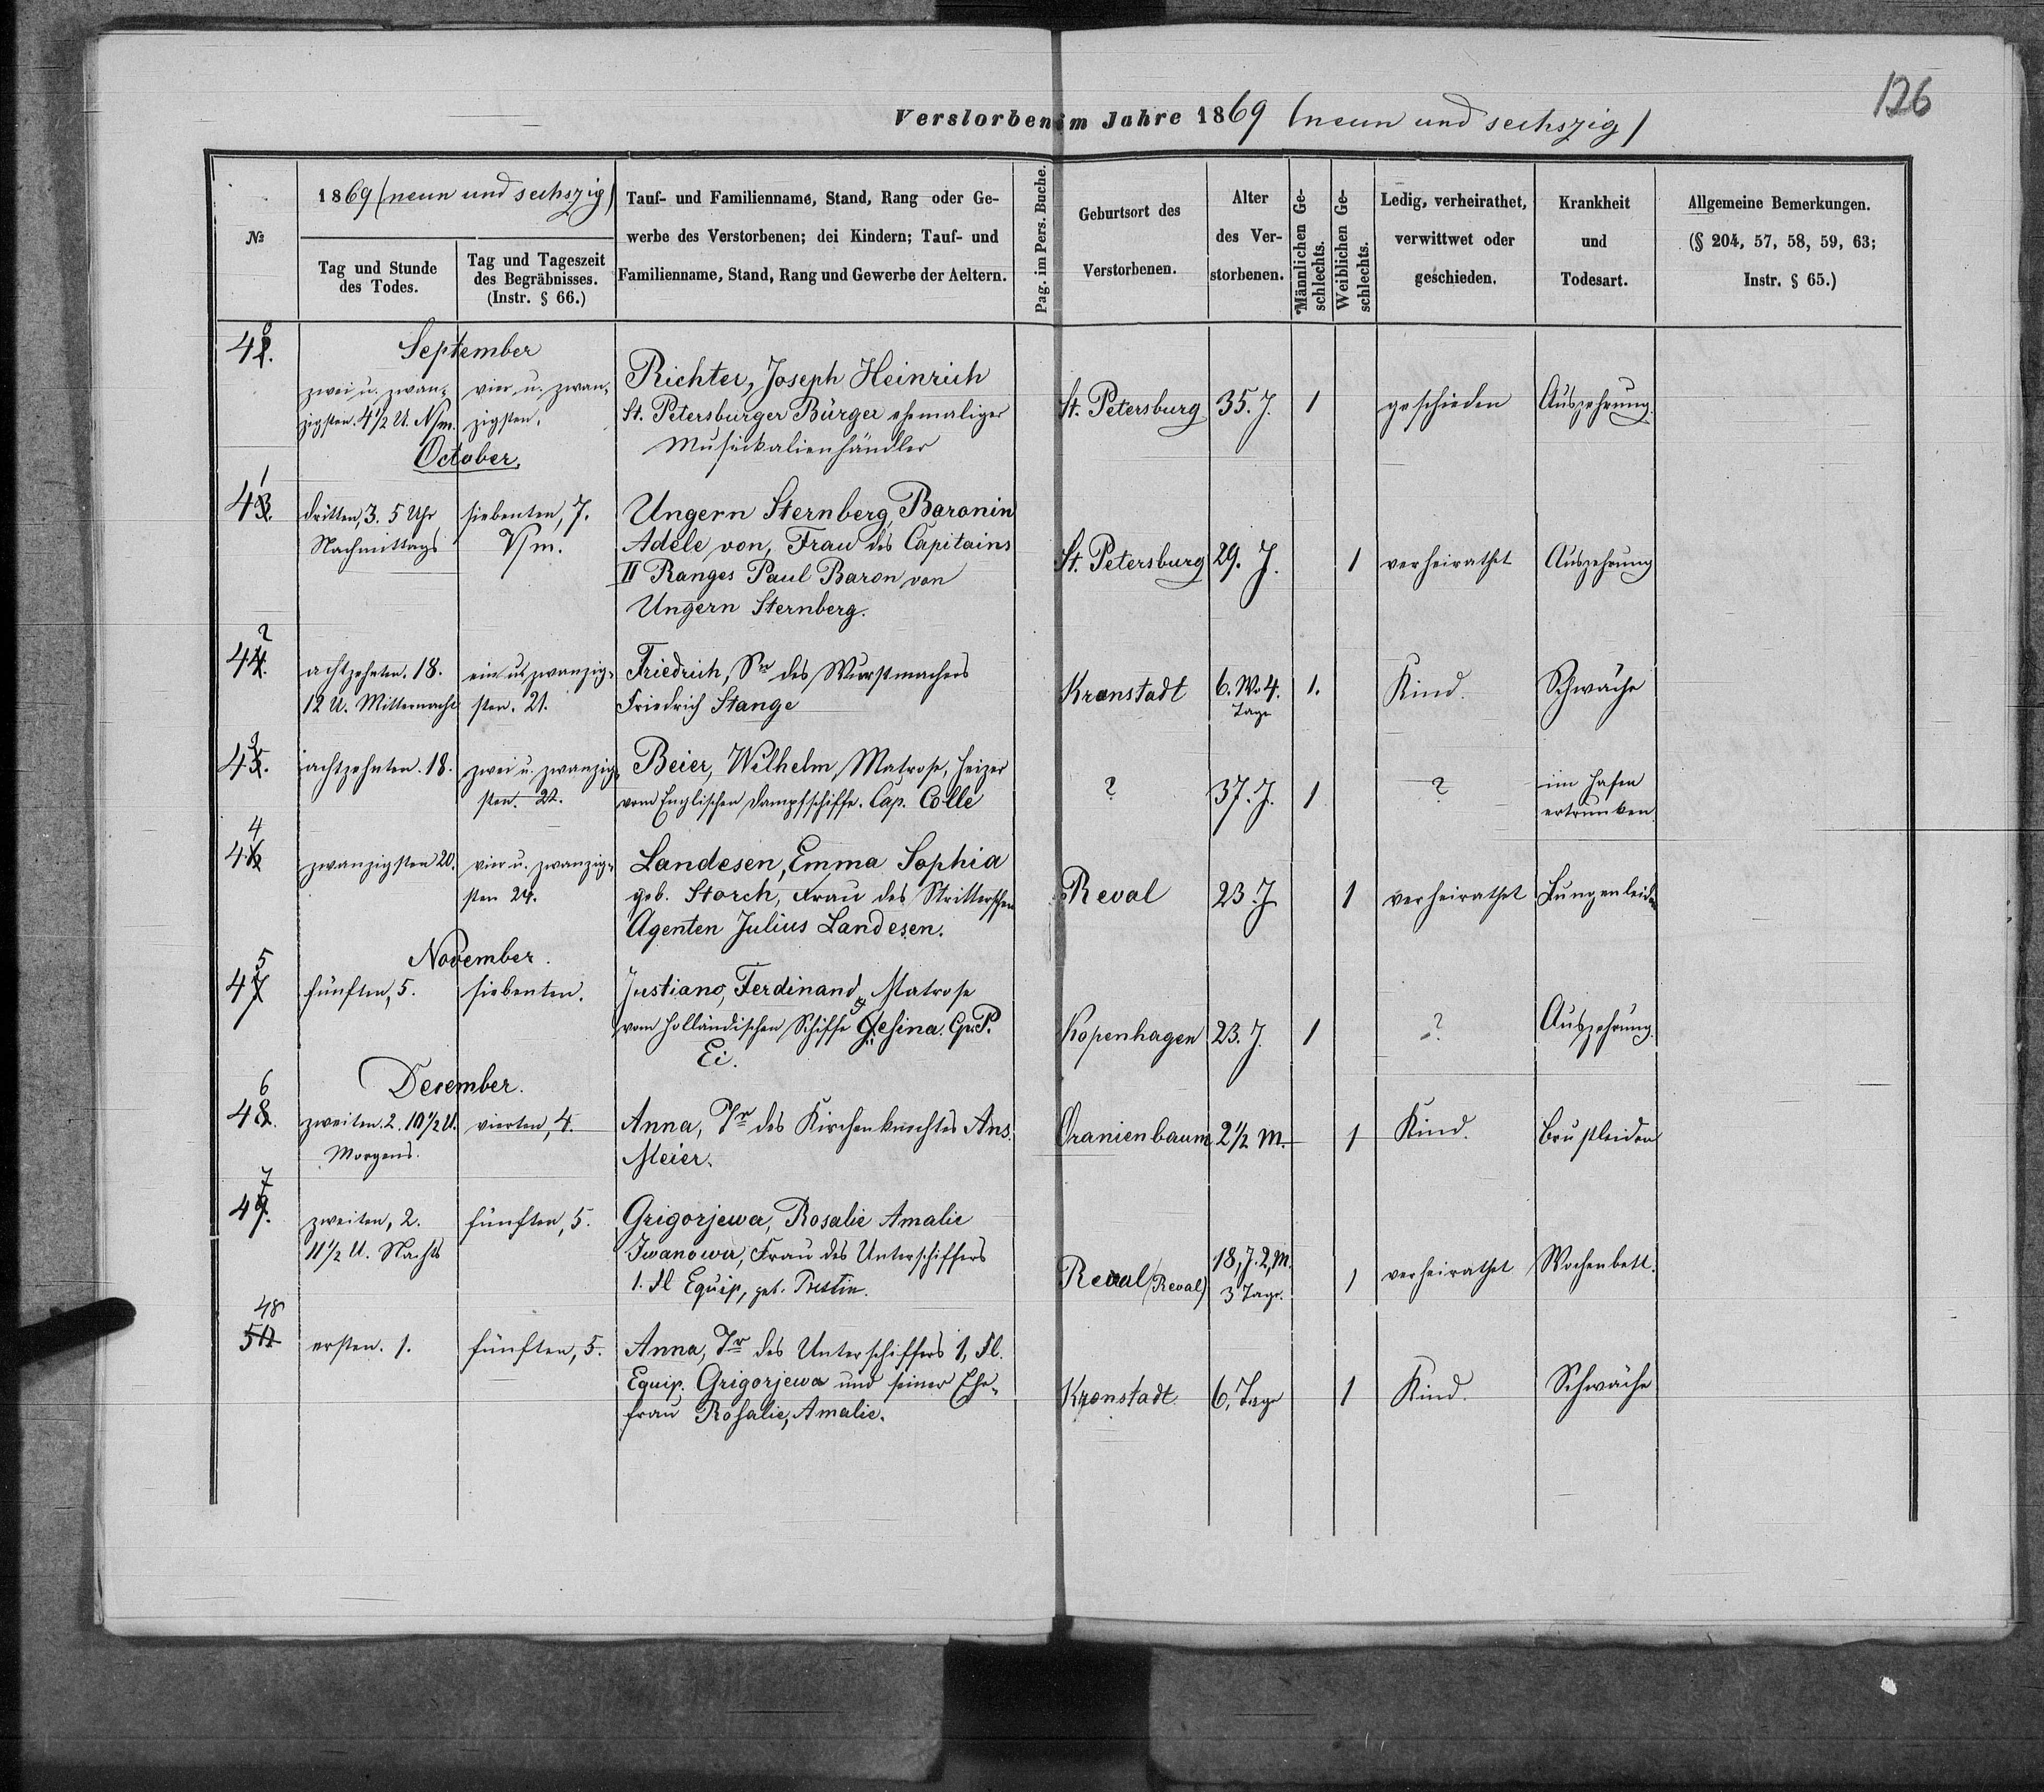 126
Verstorbene im Jahre 1869 (neun und sechszig)
№
1869 (neun und sechszig)
Tag und Stunde
des Todes.
Tag und Tageszeit
des Begräbnisses.
(Instr. § 66.)
Tauf- und Familienname, Stand, Rang oder Ge-
werbe des Verstorbenen; dei Kindern; Tauf- und
Familienname, Stand, Rang und Gewerbe der Aeltern.
Pag. im Pers. Buche.
Geburtsort des
Verstorbenen.
Alter
des Ver-
storbenen.
Männlichen Ge-
schlechts.
Weiblichen Ge-
schlechts.
Ledig, verheirathet,
verwittwet oder
geschieden.
Krankheit
und
Todesart.
Allgemeine Bemerkungen.
(§ 204, 57, 58, 59, 63;
Instr. § 65.)
September
42.
zwei u. zwan-
zigsten. 4½ U. Nm.
vier u. zwan-
zigsten.
Richter, Joseph Heinrich
St. Petersburger Bürger ehemaliger
Musickalienhändler
St. Petersburg
35. J.
1
geschieden
Auszehrung.
October.
1
43.
dritten, 3. 5 Uhr
Nachmittags
siebenten, 7.
Vm.
Ungern Sternberg, Baronin
Adele von, Frau des Capitains
II Ranges Paul Baron von
Ungern Sternberg.
St. Petersburg
29. J.
1
verheirathet
Auszehrung
2
44.
achtzehnten. 18.
12 U. Mitternacht
ein u. zwanzig-
sten. 21.
Friedrich, Sn des Wurstmachers
Friedrich Stange
Kronstadt
6. W. 4.
Tage
1.
Kind.
Schwäche
3
45.
achtzehnten. 18.
zwei u. zwanzig-
sten. 22.
Beier, Wilhelm, Matrose, Heizer
vom Englischen Dampfschiffe. Cap. Colle
?
37. J.
1
?
im Hafen
ertrunken.
4
46
zwanzigsten 20.
vier u. zwanzig-
sten 24.
Landesen, Emma Sophia
geb. Storch, Frau des Stritterschen
Agenten Julius Landesen.
Reval
23. J
1
verheirathet
Lungenleiden
November.
5
47
fünften, 5.
siebenten.
Justiano, Ferdinand, Matrose
vom Holländischen Schiffe Gesina. Cp. P.
Ei.
Kopenhagen
23. J.
1
?
Auszehrung.
December.
6
48.
zweiten. 2. 10½ U.
Morgens.
vierten, 4.
Anna, Tr des Kirchenknechtes Ans.
Meier.
Oranienbaum
2½ M.
1
Kind.
Brustleiden
7
49.
zweiten, 2.
11½ U. Nachts
fünften, 5.
Grigorjewa, Rosalie Amalie
Iwanowa, Frau des Unterschiffers
1. Fl Equip, geb. Prestin.
Reval (Reval)
18, J. 2, M.
3 Tage.
1
verheirathet
Wochenbett.
48
50
ersten. 1.
fünften, 5.
Anna, Tr des Unterschiffers 1, Fl.
Equip. Grigorjewa und seiner Ehe-
frau Rosalie, Amalie.
Kronstadt
6, Tage
1
Kind.
Schwäche